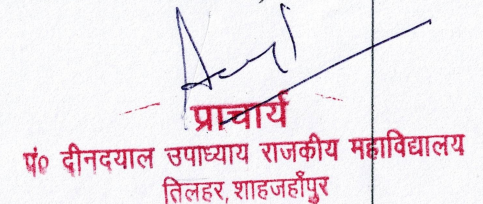 प्राचार्य
पं० दीनदयाल उपाध्याय राजकीय महाविद्यालय
तिलहर, शाहजहाँपुर